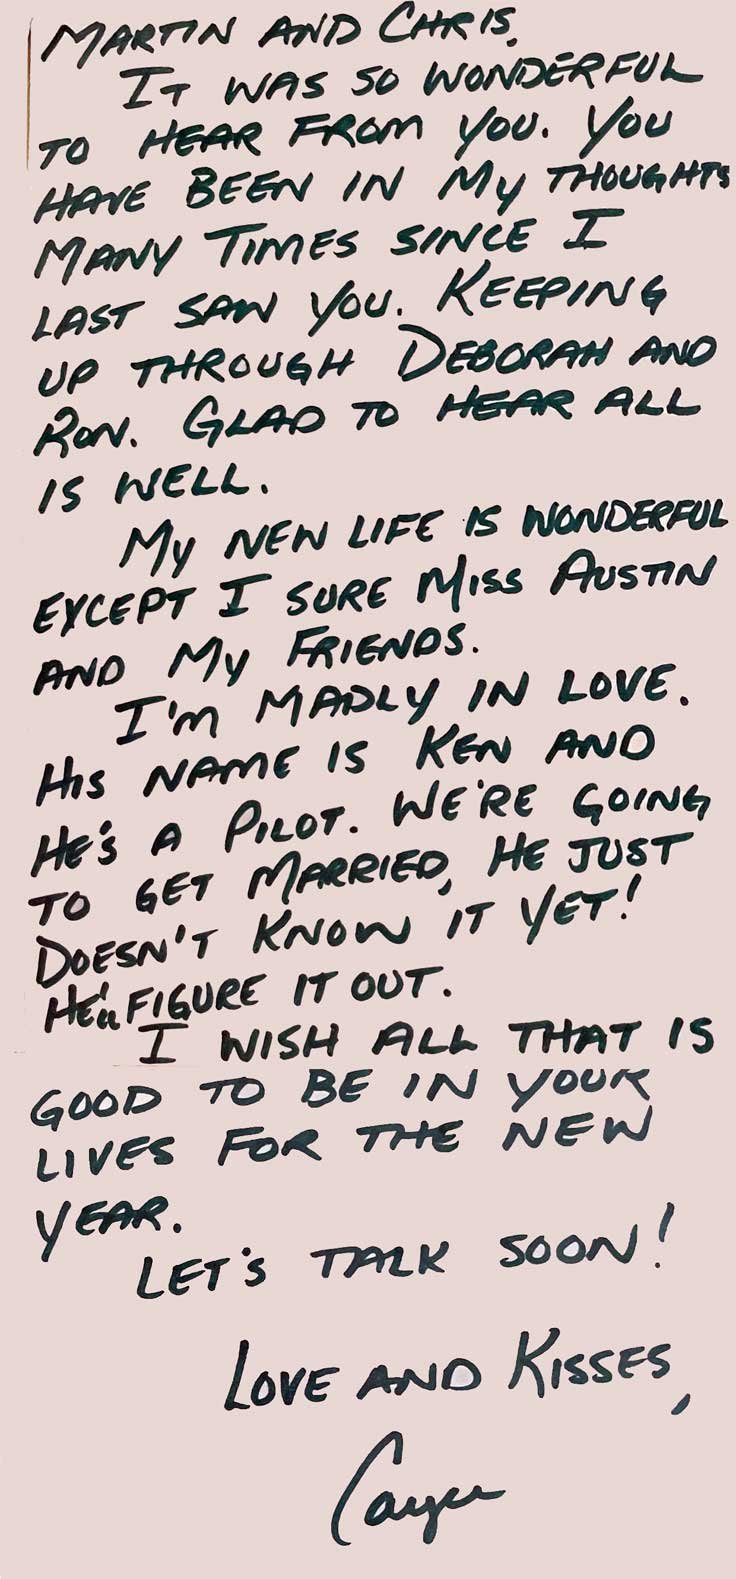 MARTIN AND CHRIS,
IT WAS SO WONDERFUL
TO HEAR FROM YOU. YOU
HAVE BEEN IN MY THOUGHTS
MANY TIMES SINCE I
LAST SAW YOU. KEEPING
UP THROUGH DEBORAH AND
RON. GLAD TO HEAR ALL
IS WELL.
MY NEW LIFE IS WONDERFUL
EXCEPT I SURE MISS AUSTIN
AND MY FRIENDS.
I'M MADLY IN LOVE.
HIS NAME IS KEN AND
HE'S A PILOT. WE'RE GOING
TO GET MARRIED, HE JUST
DOESN'T KNOW IT YET!
HE'LL FIGURE IT OUT.
I WISH ALL THAT IS
GOOD TO BE IN YOUR
LIVES FOR THE NEW
YEAR.
LET'S TALK SOON!
LOVE AND KISSES,